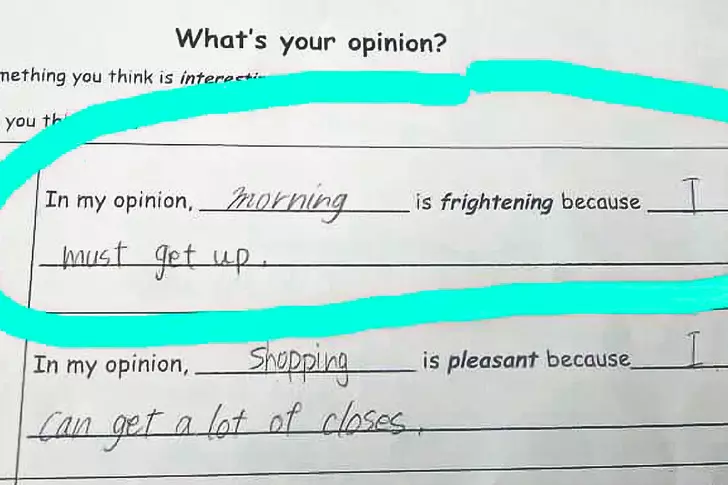 What's your opinion?
mething you think is
you
In my opinion, morning is frightening because I
must get up.
In my opinion, shopping is pleasant because I
can get a lot of closes.